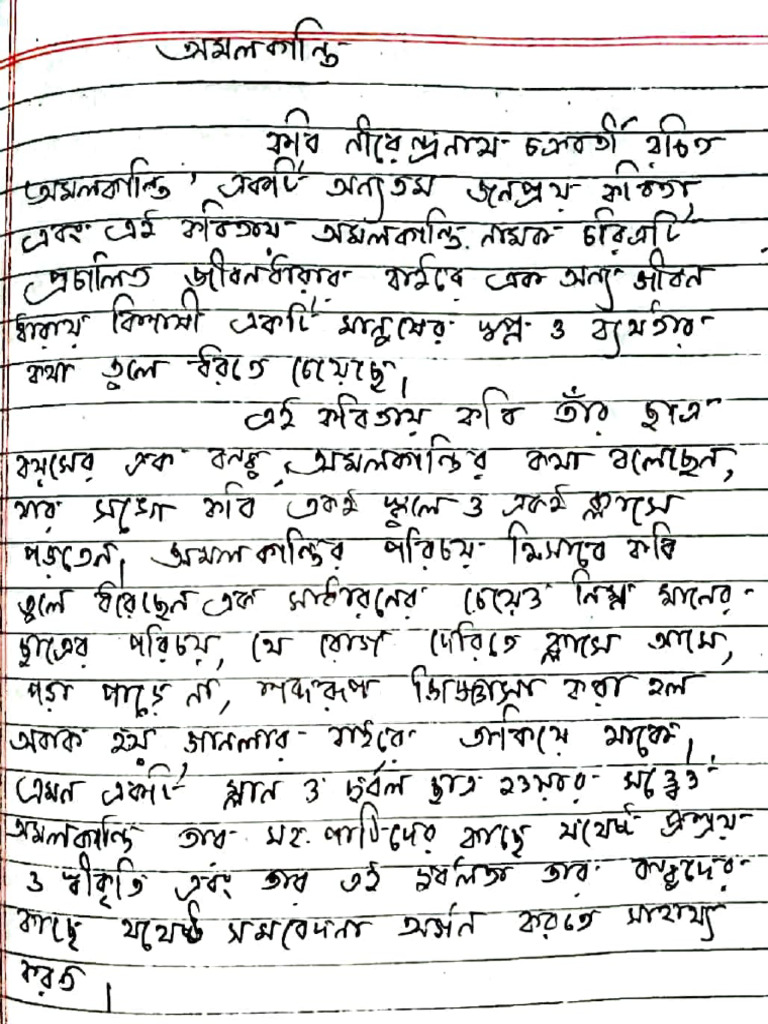 অমলকান্তি
কবি নীরেন্দ্রনাথ চক্রবর্তী রচিত
'অমলকান্তি' একটি অন্যতম জনপ্রিয় কবিতা
এবং এই কবিতায় অমলকান্তি নামক চরিত্রটি
প্রচলিত জীবনধারার বাইরে এক অন্য জীবন
ধারায় বিশ্বাসী একটি মানুষের স্বপ্ন ও ব্যর্থতার
কথা তুলে ধরতে চেয়েছে।
এই কবিতায় কবি তাঁর ছাত্র
বয়সের এক বন্ধু, অমলকান্তির কথা বলেছেন,
যার সঙ্গে কবি একই স্কুলে ও একই ক্লাসে
পড়তেন। অমলকান্তির পরিচয় হিসাবে কবি
তুলে ধরেছেন এক সাধারনের চেয়েও নিম্ন মানের
ছাত্রের পরিচয়, যে রোজ দেরিতে ক্লাসে আসে,
পড়া পাড়ে না, শব্দরূপ জিজ্ঞাসা করা হল
অবাক হয় জানলার বাইরে তাকিয়ে থাকে।
এমন একটি ম্লান ও দুর্বল ছাত্র হওয়ার সত্ত্বেও
অমলকান্তি তার সহ পাঠিদের কাছে যথেষ্ট প্রশ্রয়
ও স্বীকৃতি এবং তার এই দুর্বলতা তার বন্ধুদের
কাছে যথেষ্ট সমবেদনা অর্জন করতে সাহায্য
করত।